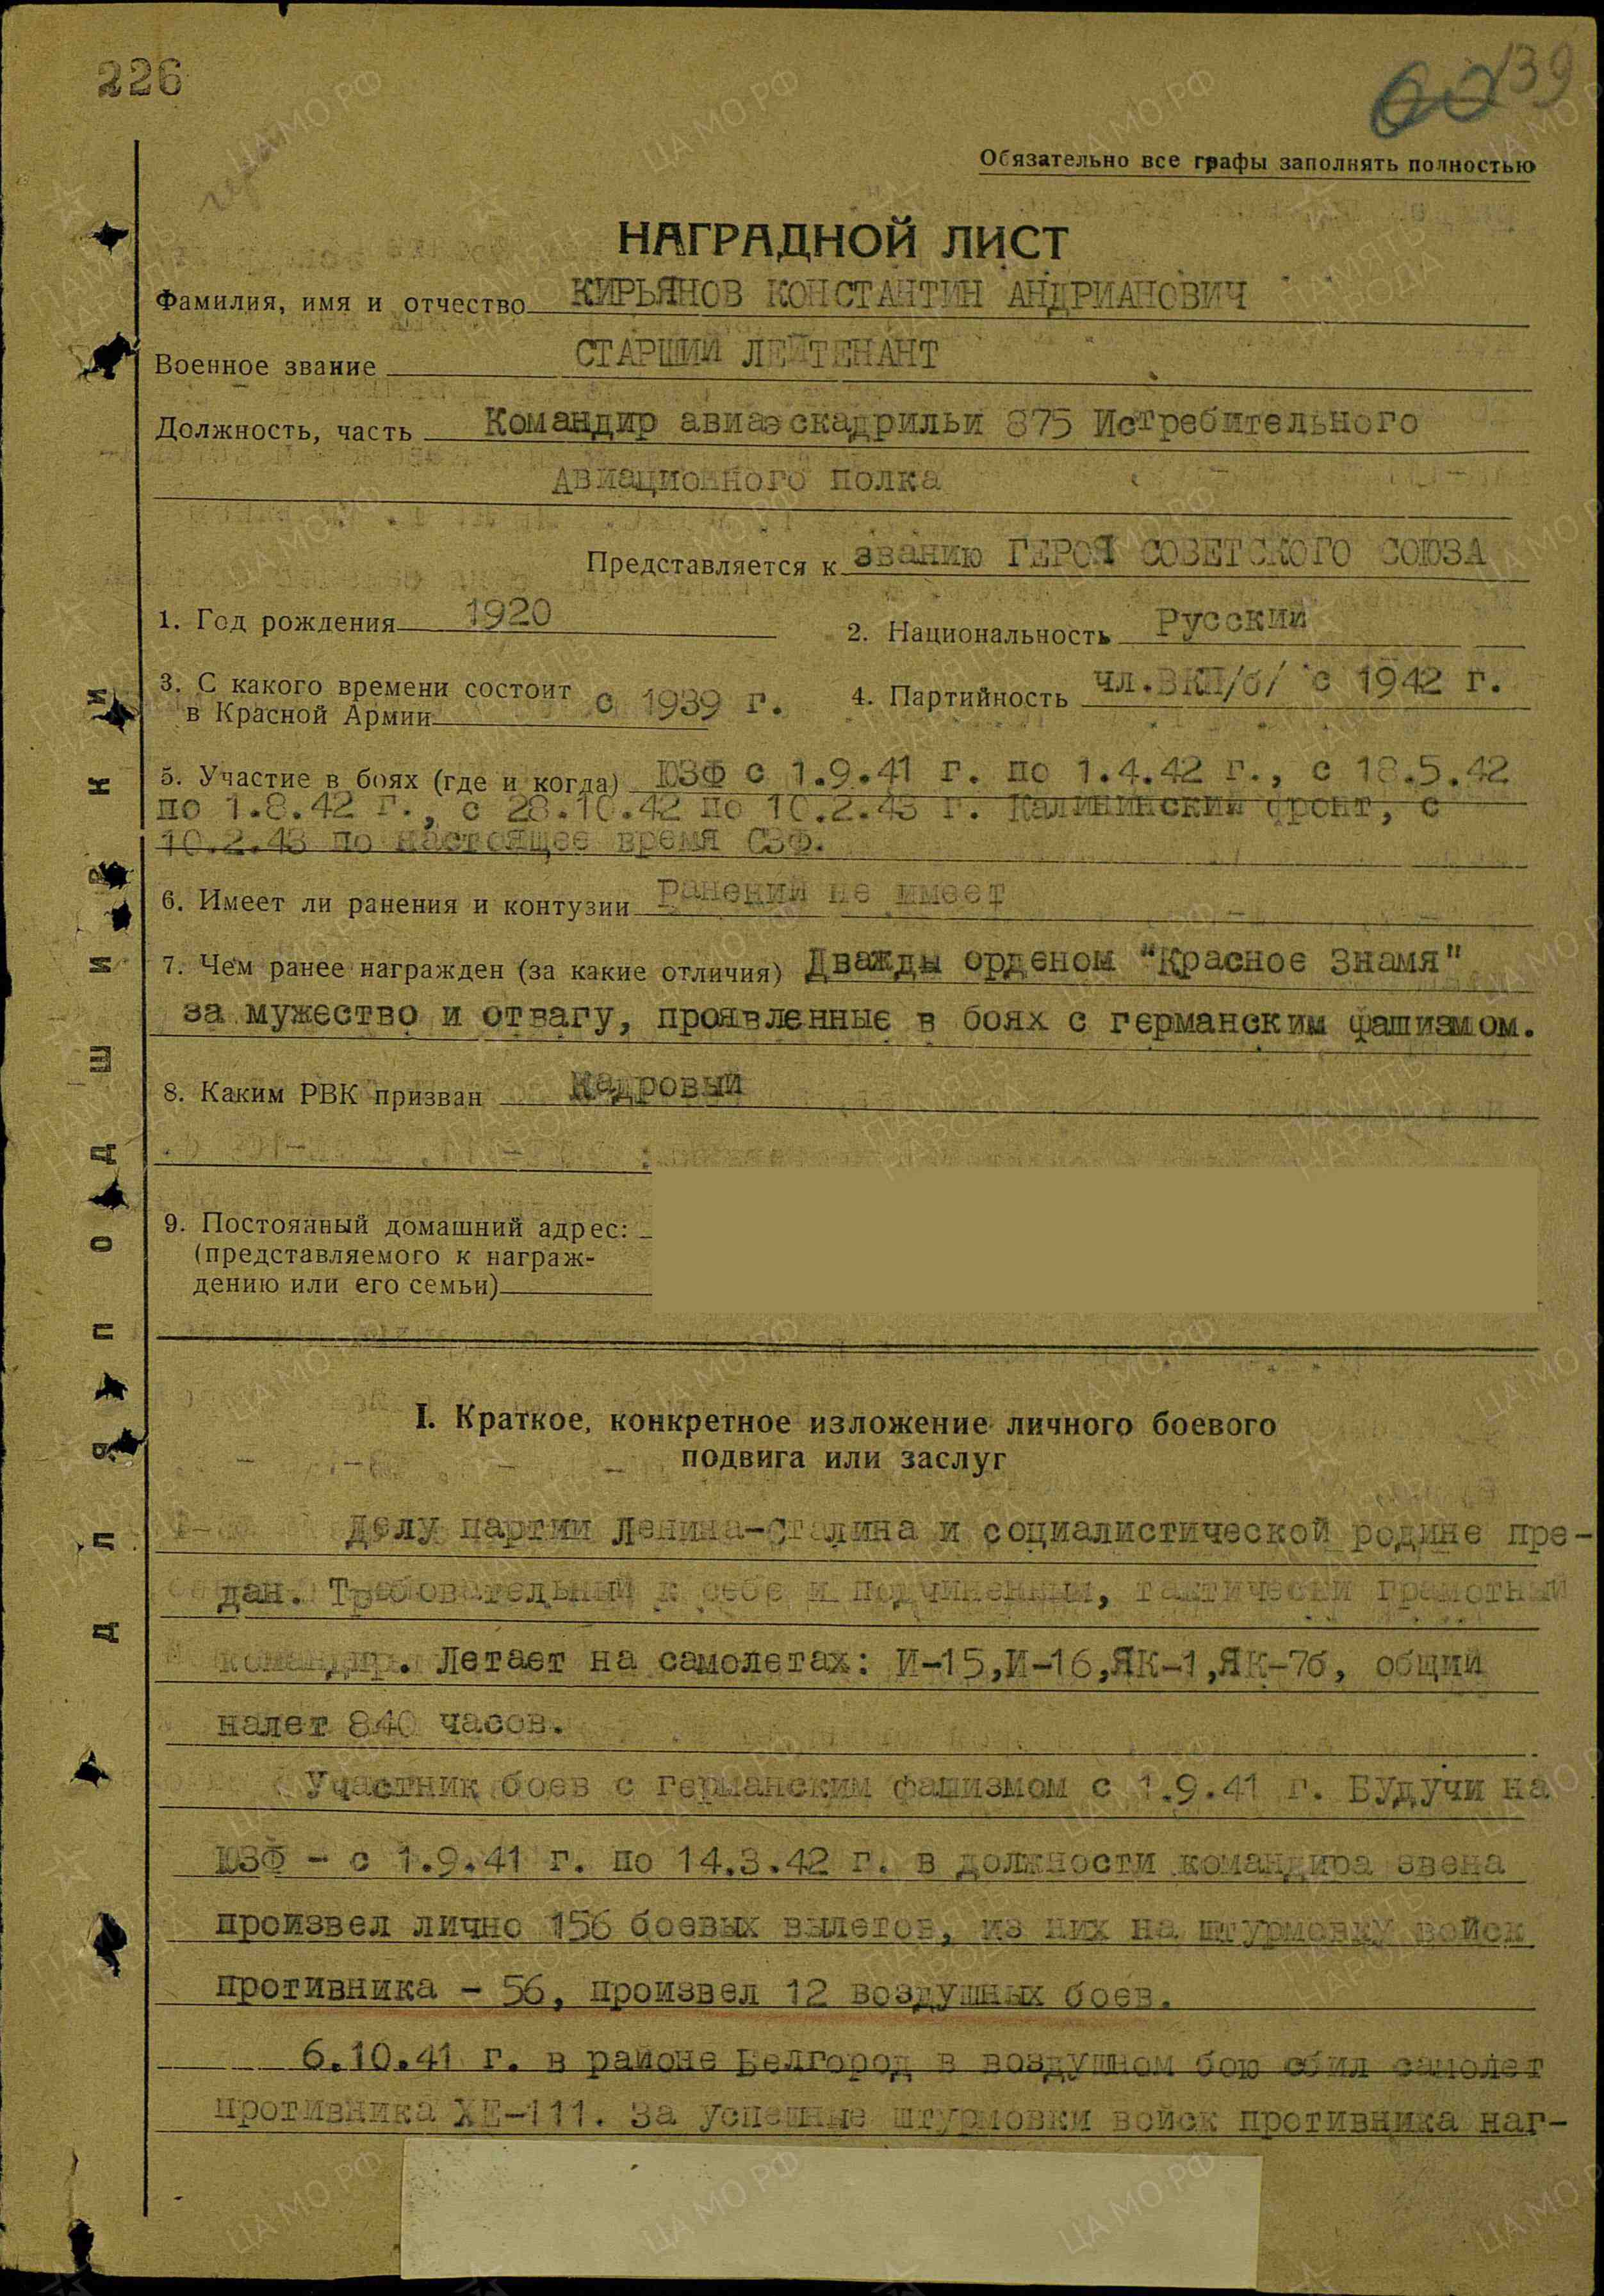 226
139
Обязательно все графы заполнять полностью
НАГРАДНОЙ ЛИСТ
Фамилия, имя и отчество КИРЬЯНОВ КОНСТАНТИН АНДРИАНОВИЧ
Военное звание СТАРШИЙ ЛЕЙТЕНАНТ
Должность, часть Командир авиаэскадрильи 875 Истребительного
Авиационного полка
Представляется к званию ГЕРОЯ СОВЕТСКОГО СОЮЗА
1. Год рождения 1920
2. Национальность Русский
3. С какого времени состоит
в Красной Армии с 1939 г.
4. Партийность чл.ВКП/б/ с 1942 г.
5. Участие в боях (где и когда) ЮЗФ с 1.9.41 г. по 1.4.42 г., с 18.5.42
по 1.8.42 г., с 28.10.42 по 10.2.43 г. Калининский фронт, с
10.2.43 по настоящее время СЗФ.
6. Имеет ли ранения и контузии Ранений не имеет
7. Чем ранее награжден (за какие отличия) Дважды орденом "Красное Знамя"
за мужество и отвагу, проявленные в боях с германским фашизмом.
8. Каким РВК призван Кадровый
9. Постоянный домашний адрес:
(представляемого к награж-
дению или его семьи)
I. Краткое, конкретное изложение личного боевого
подвига или заслуг
Делу партии Ленина-Сталина и социалистической родине пре-
дан. Требовательный к себе и подчиненным, тактически грамотный
командир. Летает на самолетах: И-15,И-16,ЯК-1,ЯК-7б, общий
налет 840 часов.
Участник боев с германским фашизмом с 1.9.41 г. Будучи на
ЮЗФ - с 1.9.41 г. по 14.3.42 г. в должности командира звена
произвел лично 156 боевых вылетов, из них на штурмовку войск
противника - 56, произвел 12 воздушных боев.
6.10.41 г. в районе Белгород в воздушном бою сбил самолет
противника ХЕ-111. За успешные штурмовки войск противника наг-
Для подшивки
ЦА МО РФ
ПАМЯТЬ НАРОДА